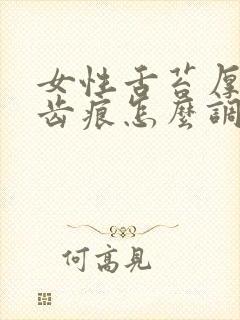 女性舌苔厚
齿痕怎麼調
何高見